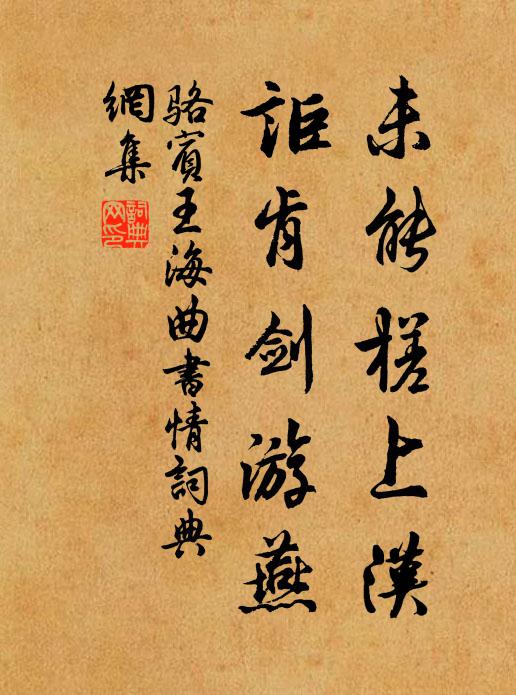 未能槎上漢
詎肯剑游燕
骆賓王海曲書情詞典
網集
詞典
网印